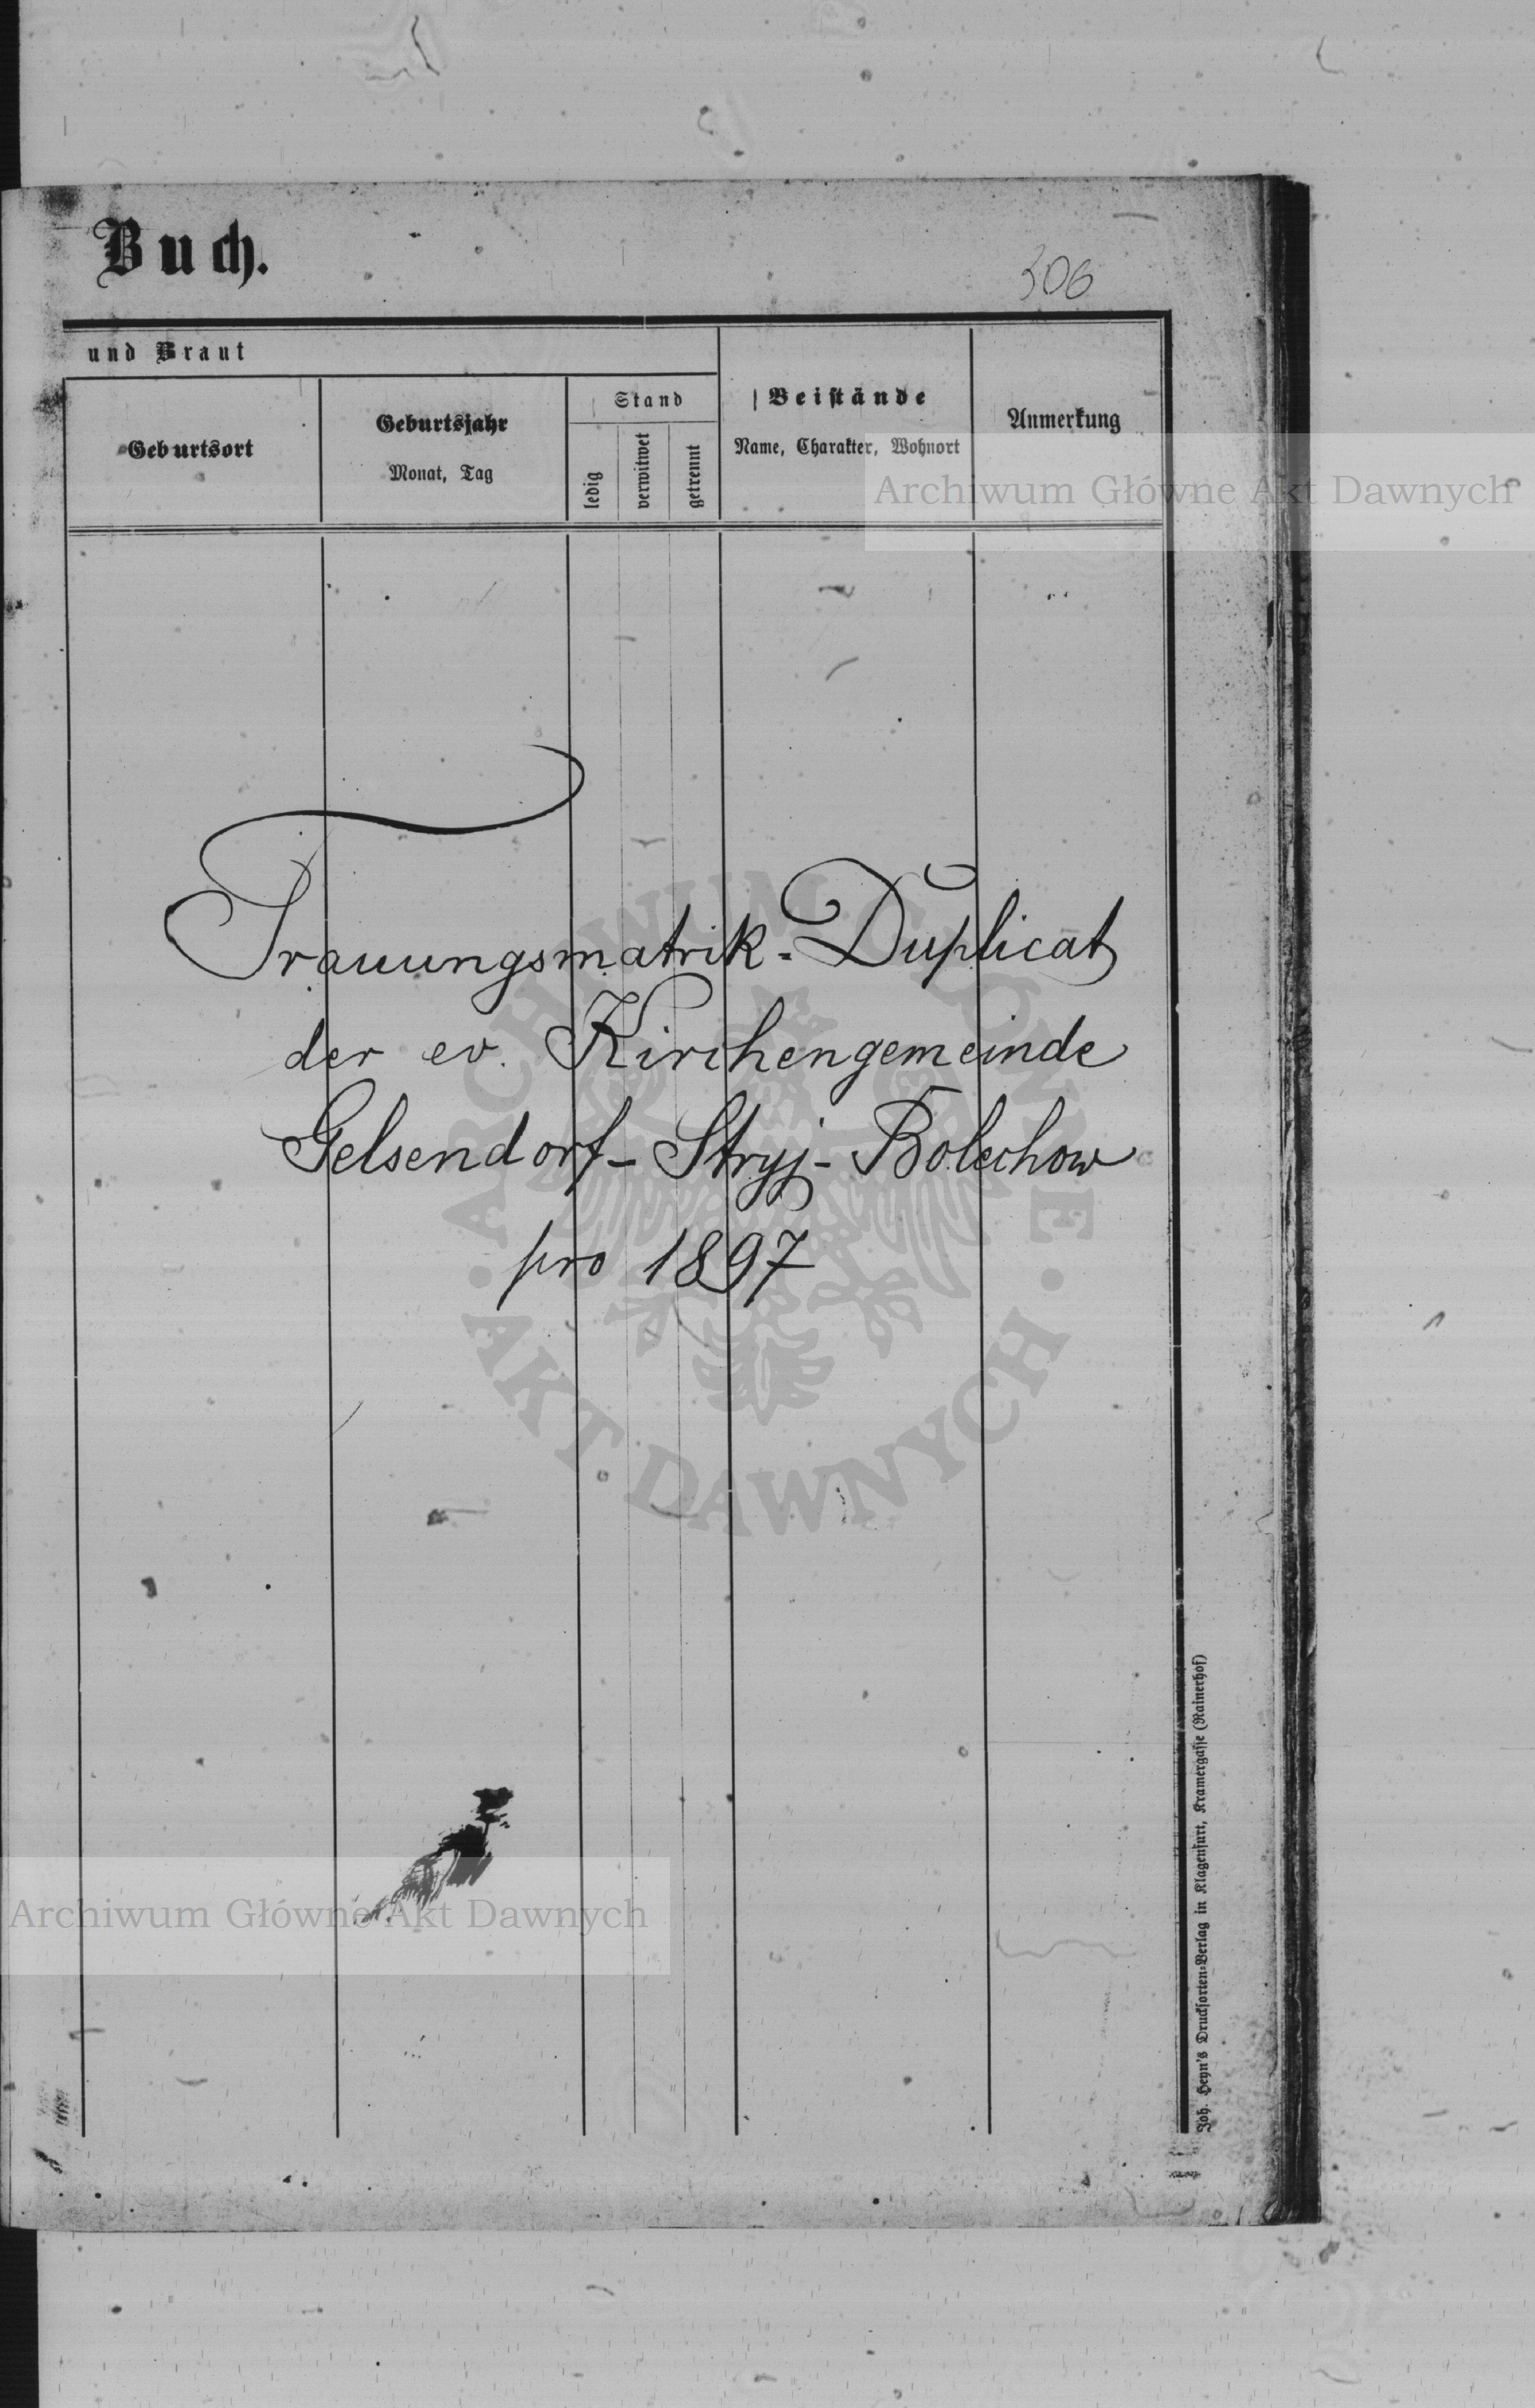 Buch.
306
und Braut
Geburtsort
Geburtsjahr
Monat, Tag
Stand
ledig
verwitwet
getrennt
Beistände
Name, Charakter, Wohnort
Anmerkung
Archiwum Główne Akt Dawnych
Trauungsmatrik-Duplicat
der ev. Kirchengemeinde
Gelsendorf-Stryj-Bolechow
pro 1897
ARCHIWUM GŁÓWNE
AKT DAWNYCH
Archiwum Główne Akt Dawnych
Joh. Heyn's Drucksorten-Verlag in Klagenfurt, Kramergasse (Rainerhof)